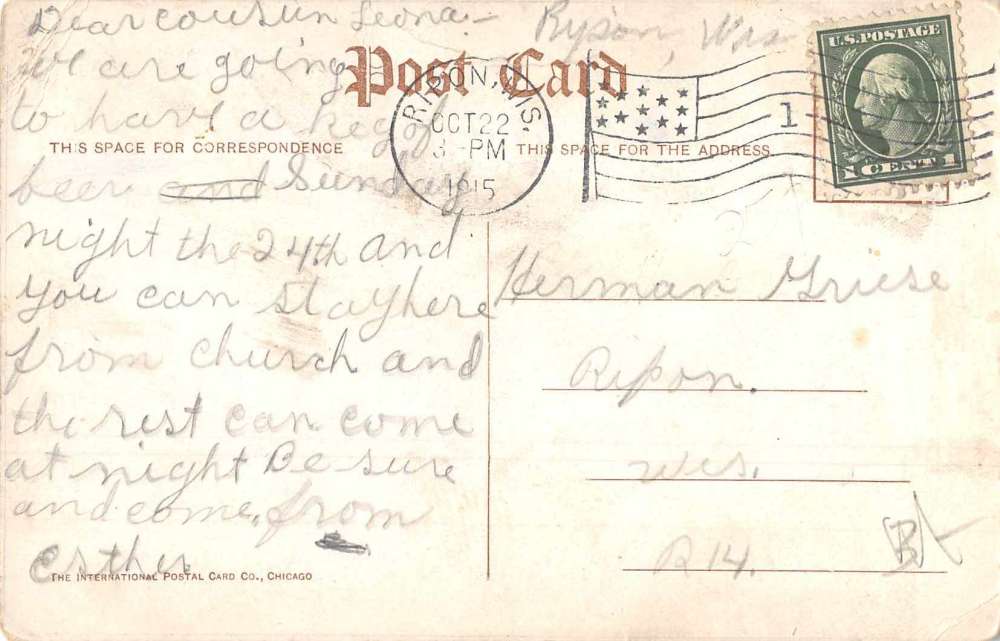 Dear cousin Leona-
Ripon, Wis
we are going
Post Card
to have a keg of
RIPON, WIS.
OCT 22
3 - PM
1915
1
U.S. POSTAGE
1 CENT 1
THIS SPACE FOR CORRESPONDENCE
THIS SPACE FOR THE ADDRESS
beer and Sunday
night the 24th and
you can stay here
from church and
the rest can come
at night Be sure
and come. from
esther
THE INTERNATIONAL POSTAL CARD CO., CHICAGO
Herman Griese
Ripon.
Wis.
R 14.